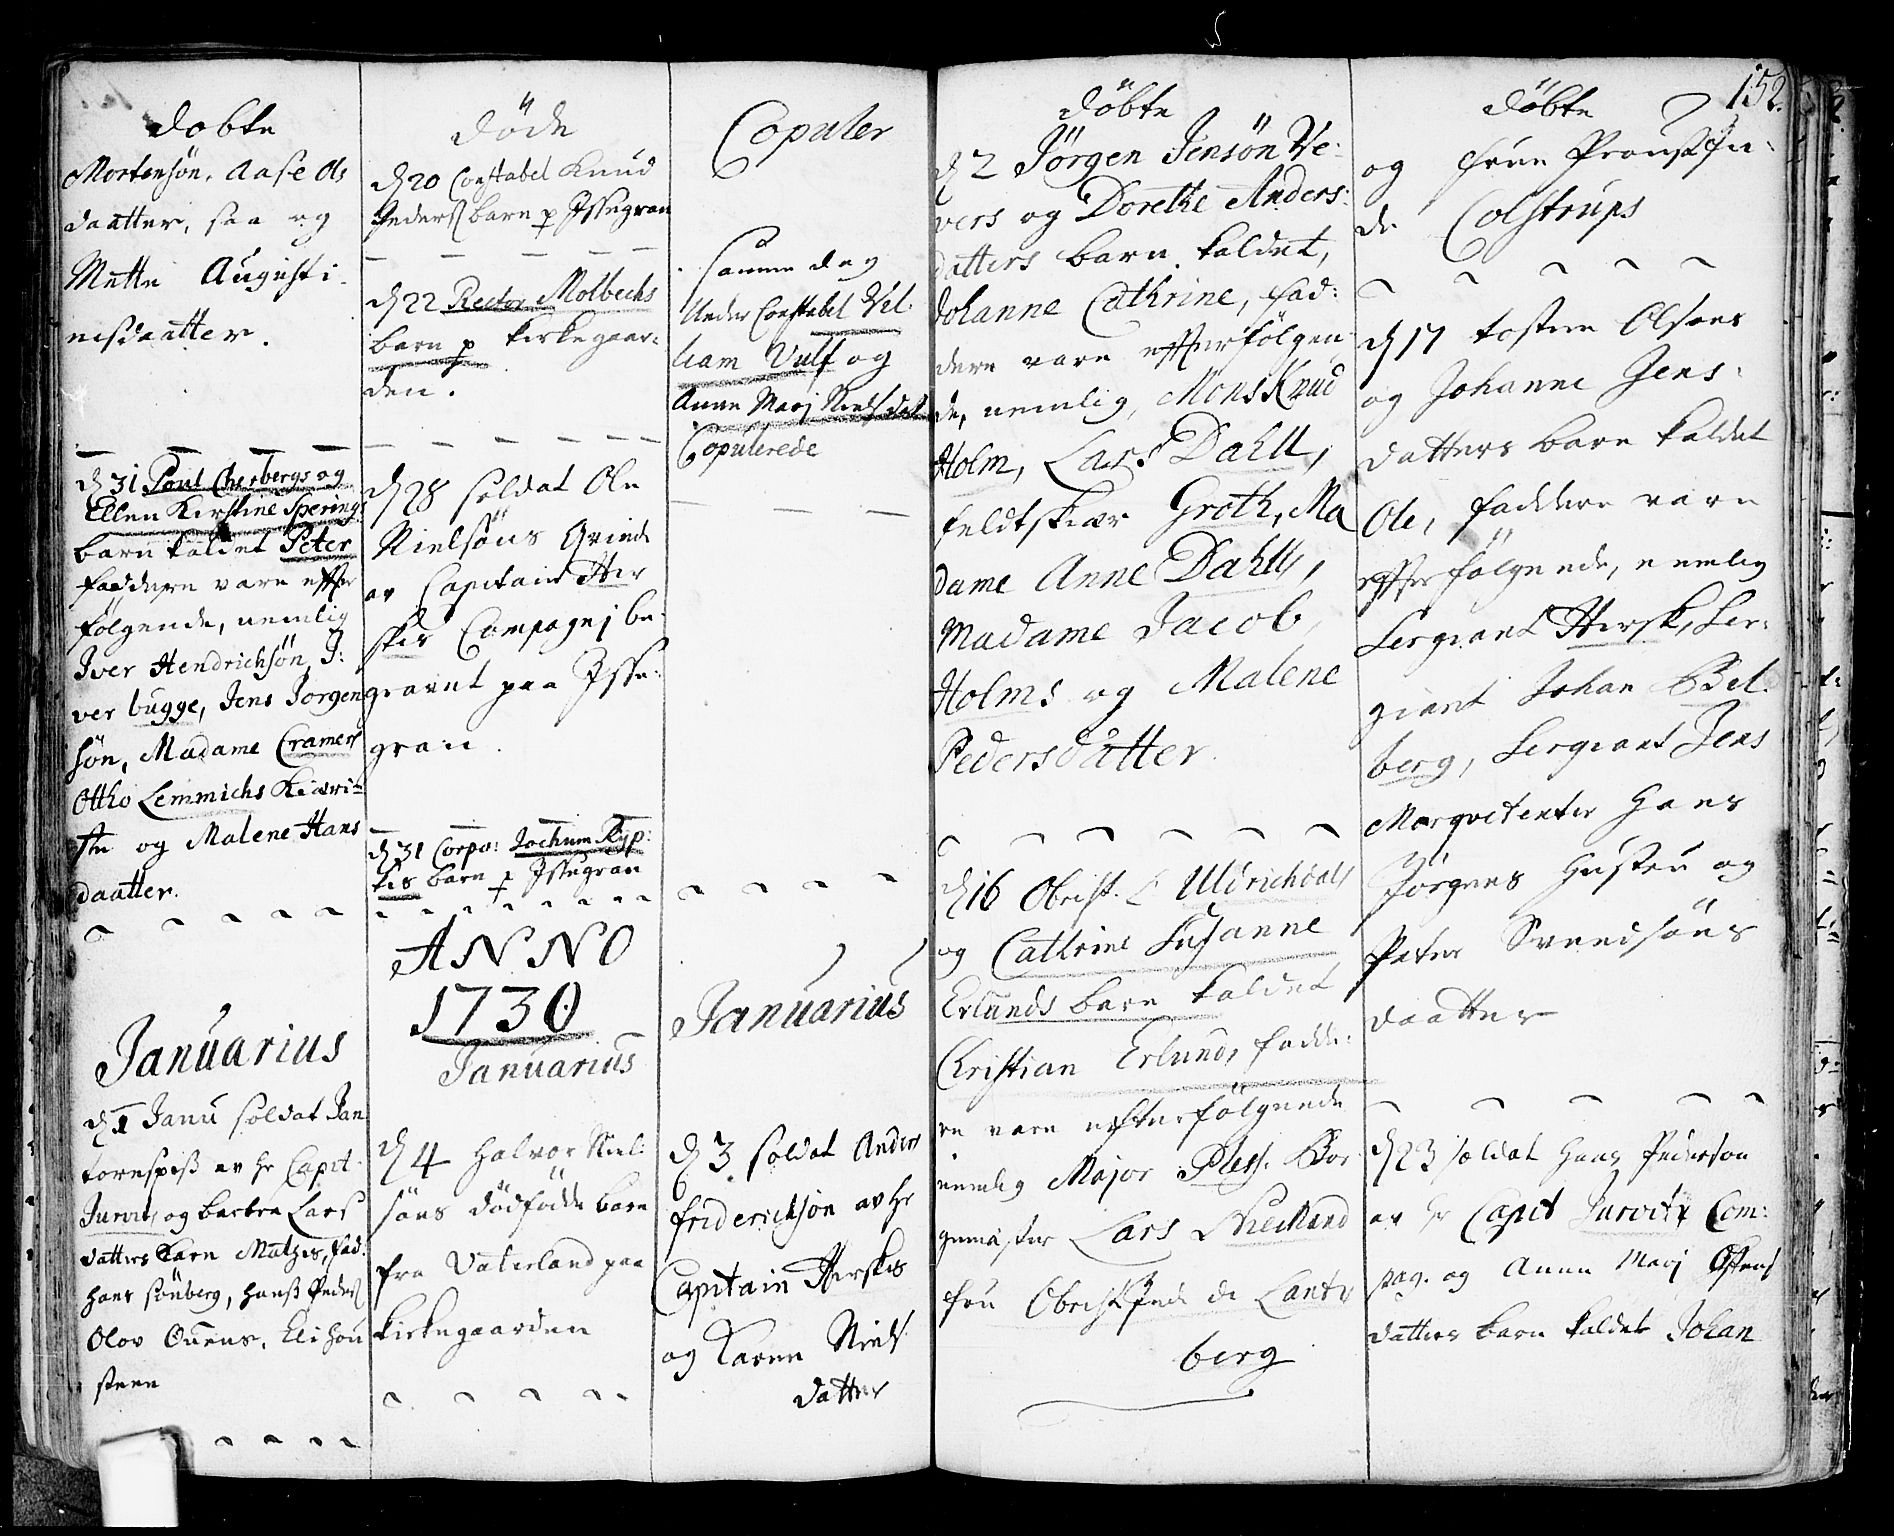 152.
dobte
Mortensön, Aase Ols
daatter, saa og
Mette Augusti-
nisdaatter.
d 31 Poul Cherbergs og
Ellen Kirstine Sperings
barn kaldet Peter
faddere vare effter
følgende, nemlig
Iver Hendrichsön, I:
ver bugge, Jens Jorgen
søn, Madame Cramers
Ottho Lemmichs Kiæri-
ste og Malene Hans
daatter.
Januarius
d 1 Janu soldat Jan
av hr Capit
Jurvits og barbra Lars
datters barn Matzis, fad:
Hans sönberg, Hanss Peders
Olov Ouens, Eli Hou
steen
döde
d 20 Constabel Knud
Peders barn p Issegran
d 22 Rector Molbechs
barn p kirkegaar-
den.
d 28 soldat Ole
Nielsöns Qvinde
av Capitain Hir
skis Compagni be-
gravet paa Isse-
gran.
d 31 Corpo: Jochum Ryp:
kis barn p Issegran
ANNO
1730
Januarius
d 4 Halvor Niel:
söns dödfödde barn
fra Vaterland paa
kirkegaarden
Copuler
samme dag
Under Constabel Vel-
liam Vulf og
Anne Marj Niels dat
Copulerede
Januarius
d 3 soldat Anders
friderichsön av hr
Capitain Hirskis
og Karen Niels
datter
döbte
d 2 Jörgen Jensön Ve-
vers og Dorethe Anders-
datters barn kaldet,
Johanne Cathrine, fad:
dere vare effterfölgen
de, nemlig, Mons Knud
Holm, Lars Dahll,
feldtskiær Groth, Ma
dame Anne Dahlls,
Madame Jacob
Holms og Malene
Pedersdatter.
d 16 Obrist: L Uldrichdals
og Cathrine Susanne
Erlunds barn kaldet
Christian Erlund, fadde:
re vare effterfölgende
nemlig Major Pless. Bor
gemester Lars
fru Obrist de Cante
berg
döbte
og frue Proust In-
de Colstrups
d 17 tosten Olsens
og Johanne Jens-
datters barn kaldet
Ole, faddere vare
effterfölgende, nemlig
Sergiant Hirsk, Ser-
giant Johan Bil-
berg, Sergiant Jens
Marqvetenter Hans
Jörgens Hustru og
Peter Svendsöns
daatter
d 23 soldat Hans Pederson
av hr Capit Jurvitz Com-
pag. og Anne Marj Ostens
datters barn kaldet Johan